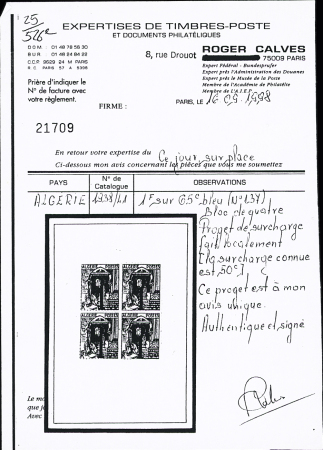 25
526e
EXPERTISES DE TIMBRES-POSTE
ET DOCUMENTS PHILATÉLIQUES
DOM : 01 48 78 56 30
BUR : 01 48 24 84 22
C.C.P. 9629 24 M PARIS
R C PARIS 57 A 6398
8, rue Drouot
ROGER CALVES
75009 PARIS
Expert Fédéral - Bundesprufer
Expert près l'Administration des Douanes
Expert près le Musée de la Poste
Membre de l'Académie de Philatélie
Membre de l'A.I.E.P.
Prière d'indiquer le
N° de facture avec
votre règlement.
FIRME :
PARIS, le 16.09.1998
21709
En retour votre expertise du Ce jour, sur place
Ci-dessous mon avis concernant les pièces que vous me soumettez
PAYS
N° de
Catalogue
OBSERVATIONS
ALGERIE 1938/41 1F sur 65c bleu (N°137)
Bloc de quatre
Projet de surcharge
fait localement
[la surcharge connue
est 50c]
Ce projet est à mon
avis unique.
Authentique et signé
ALGERIE POSTES
ALGERIE POSTES
ALGERIE POSTES
ALGERIE POSTES
Le mo
que je
Avec